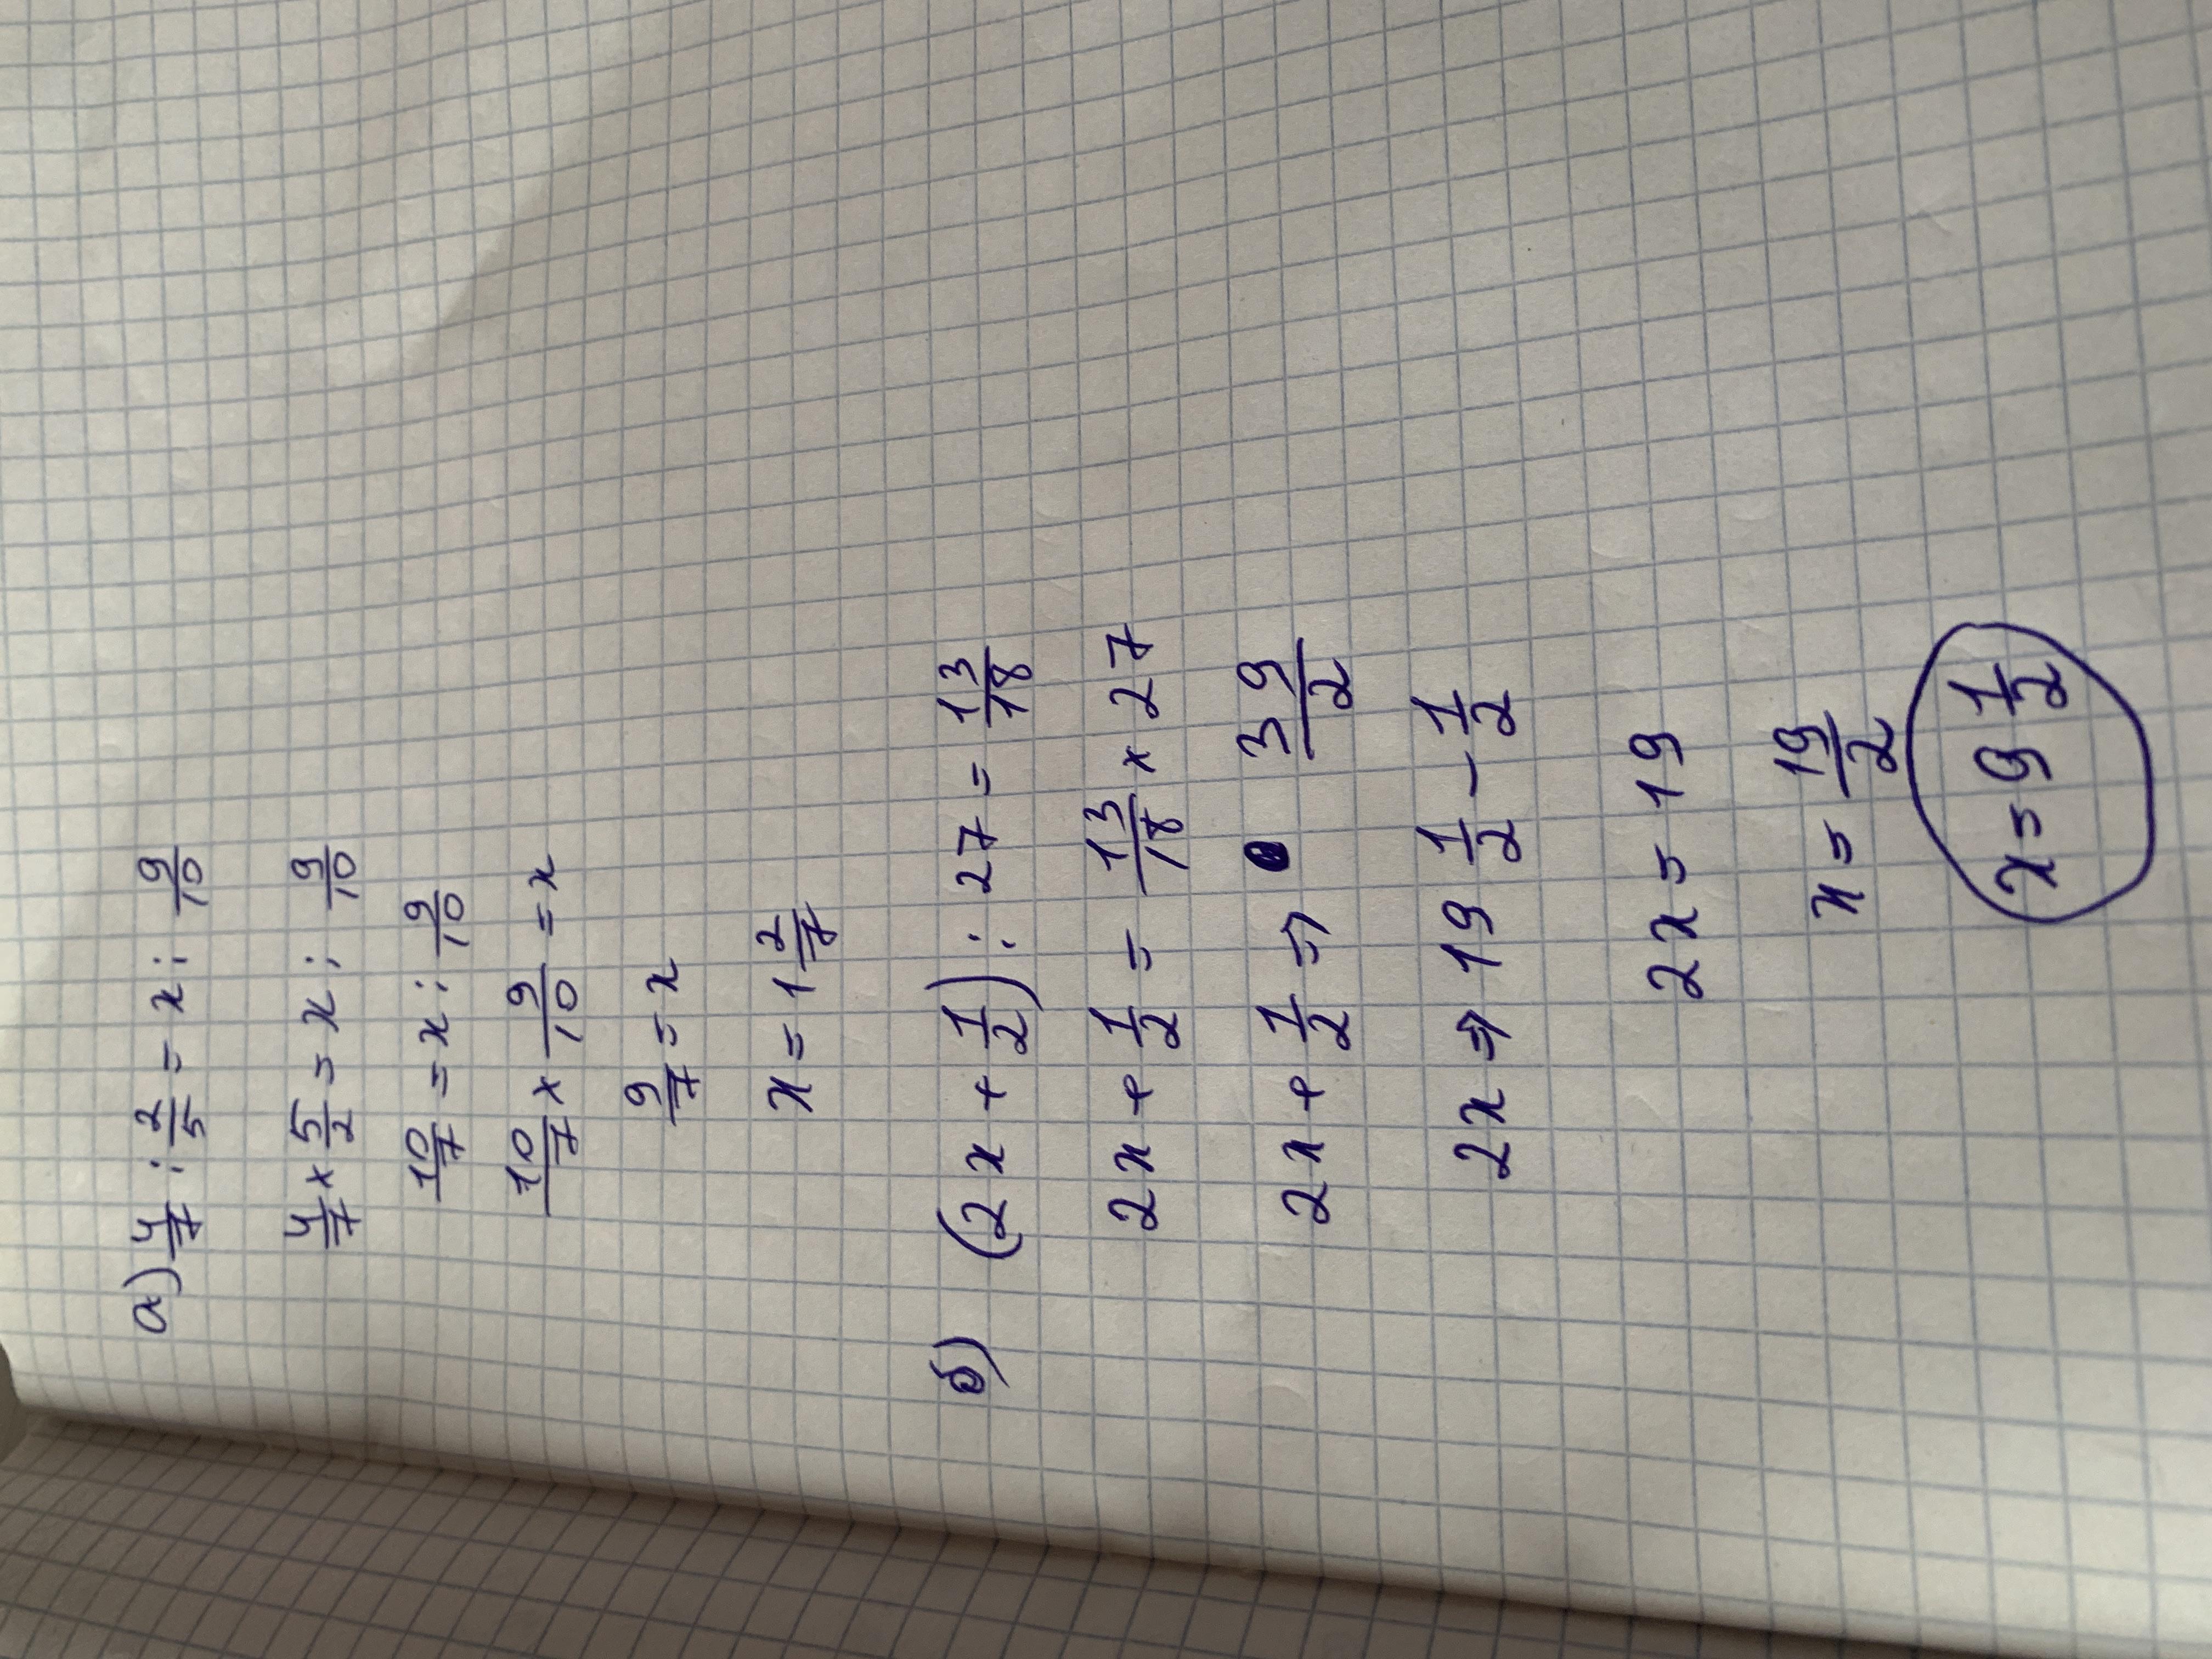 а) 4/7 : 2/5 = x : 9/10
4/7 × 5/2 = x : 9/10
10/7 = x : 9/10
10/7 × 9/10 = x
9/7 = x
x = 1 2/7
б) (2x + 1/2) : 27 = 13/18
2x + 1/2 = 13/18 × 27
2x + 1/2 = 39/2
2x = 19 1/2 - 1/2
2x = 19
x = 19/2
x = 9 1/2